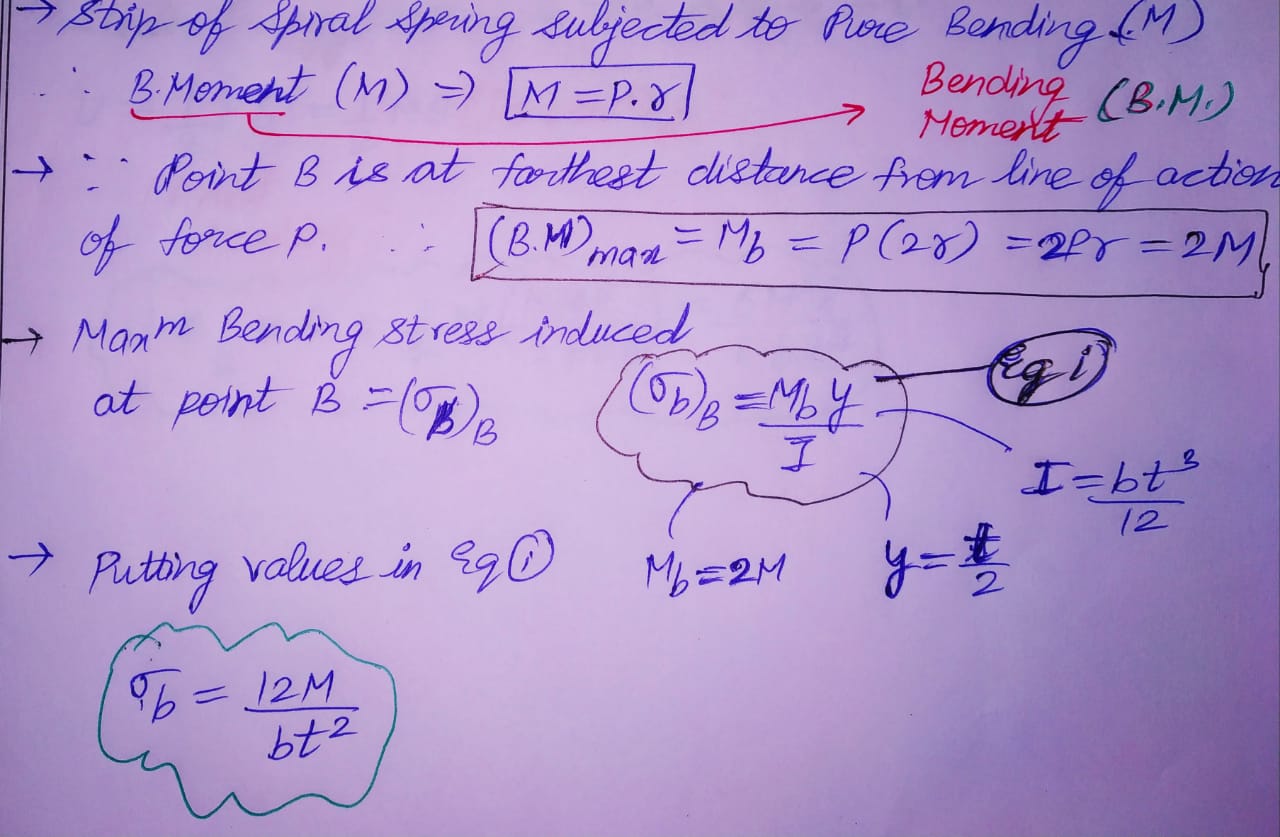 → Strip of Spiral Spring subjected to Pure Bending (M)
∴ B.Moment (M) ⇒ M = P.r Bending Moment (B.M.)
→ ∵ Point B is at farthest distance from line of action
of force P. ∴ (B.M)max = Mb = P(2r) = 2Pr = 2M
→ Maxm Bending stress induced
at point B = (σb)B (σb)B = Mb y / I Eq i
I = bt³/12
→ Putting values in Eq ⓘ Mb = 2M y = t/2
σb = 12M / bt²